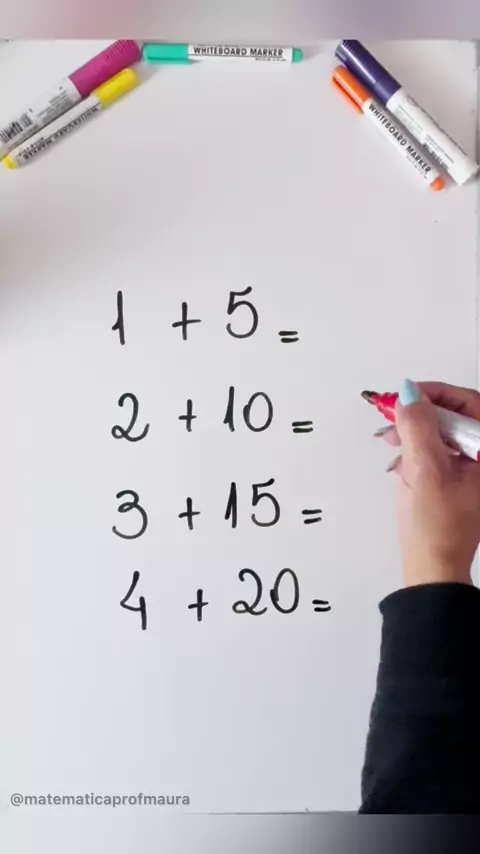 WHITEBOARD MARKER
WHITEBOARD MARKER
1 + 5 =
2 + 10 =
3 + 15 =
4 + 20 =
@matematicaprofmaura